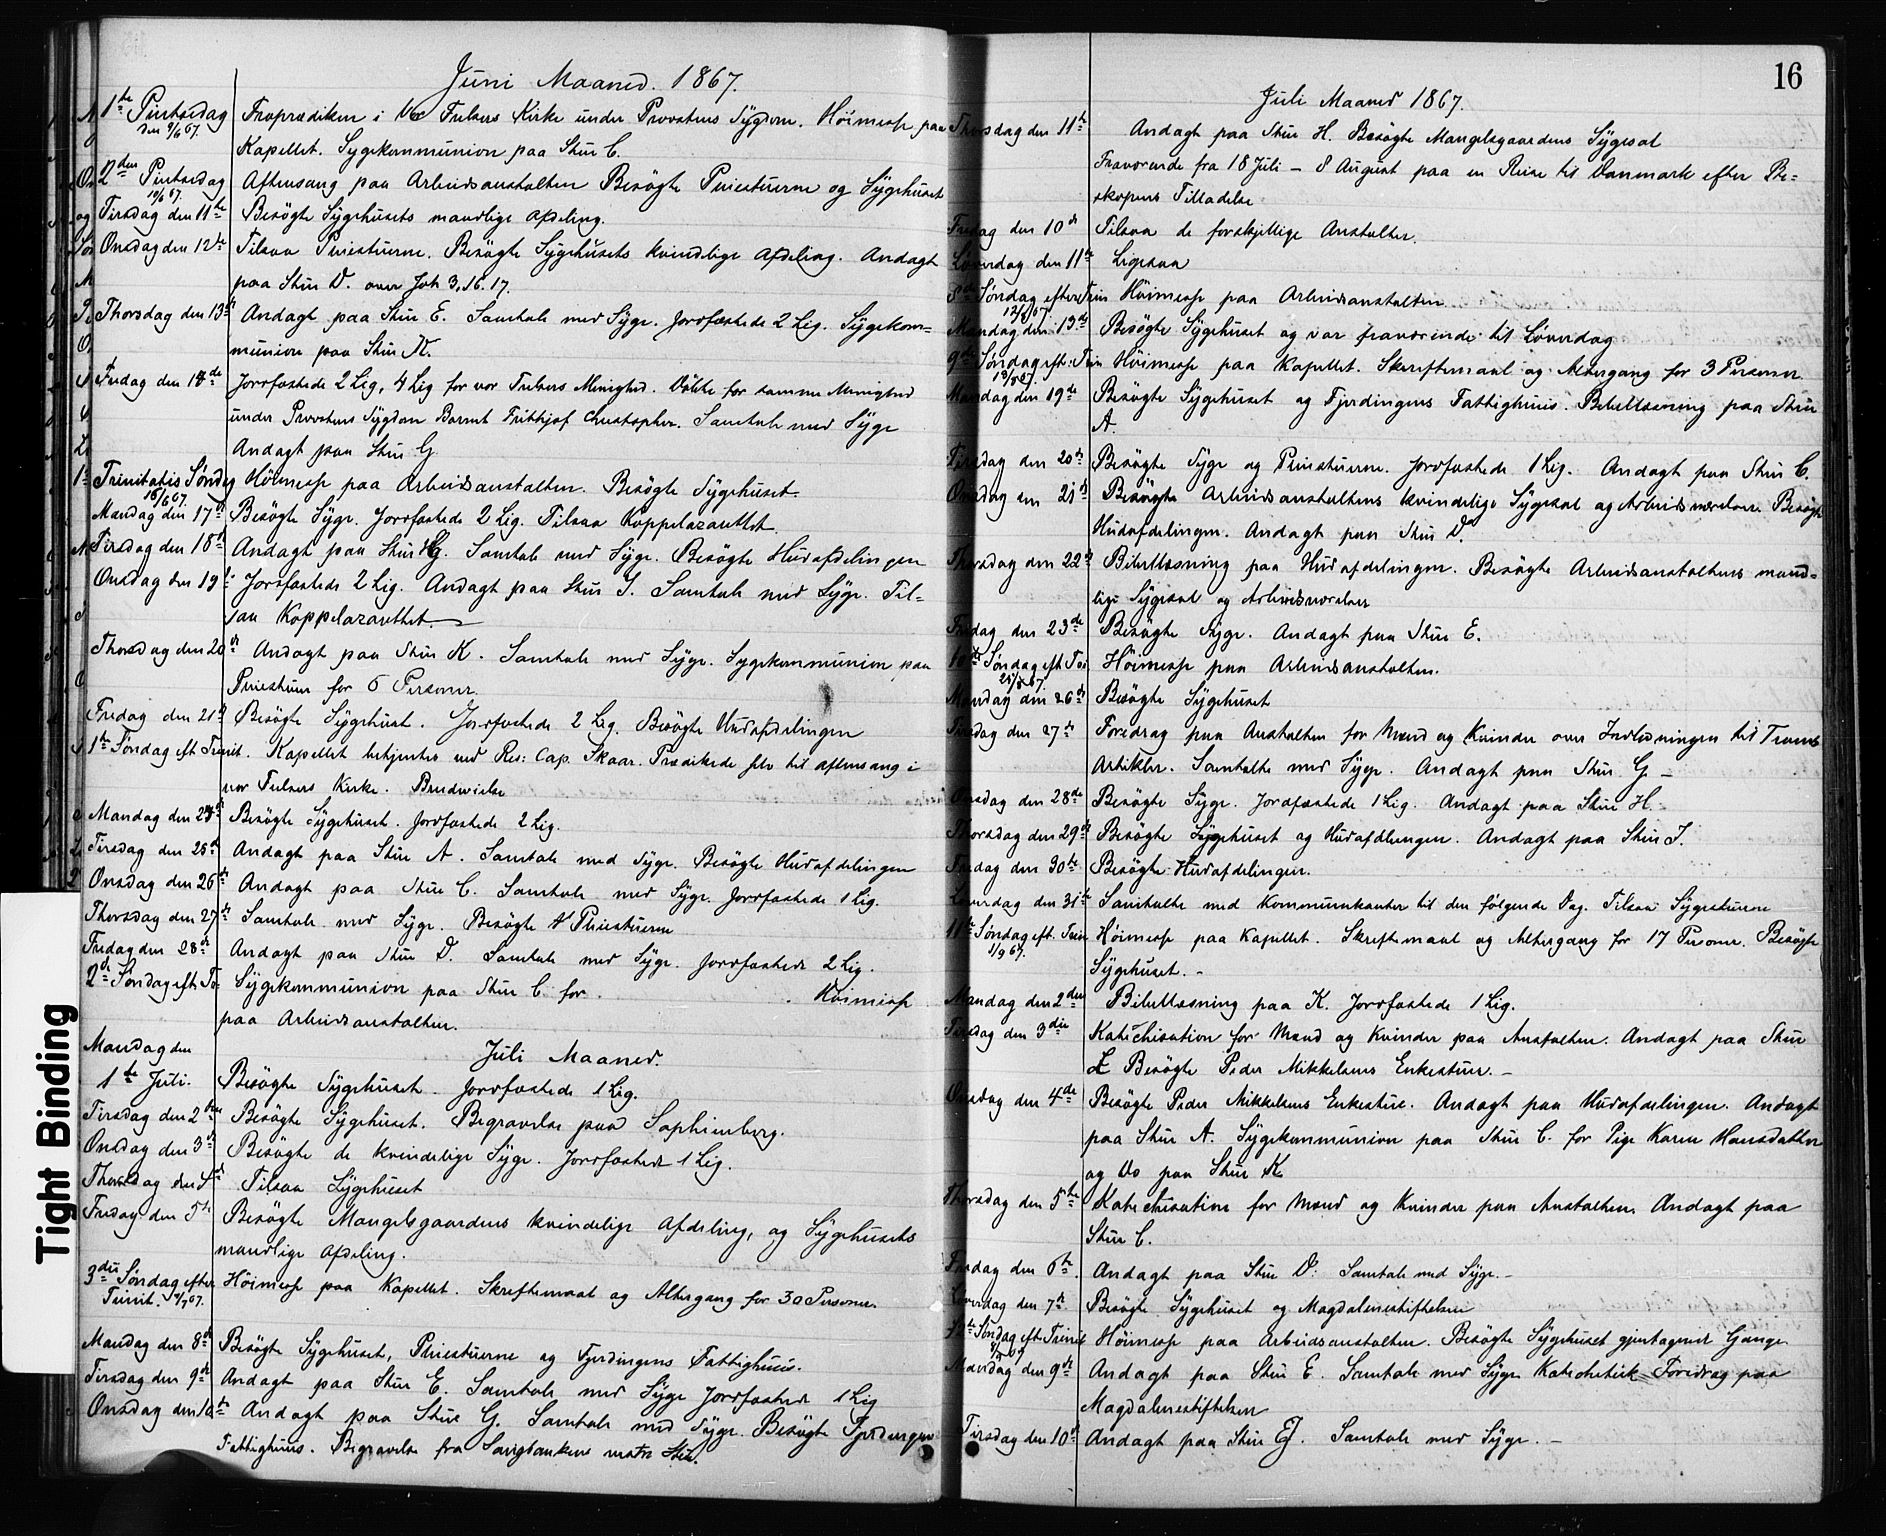 Juni Maaned. 1867.
1te Pintsedag Froprædiken i Vor Frelsers Kirke under Provstens Sygdom. Höimesse paa
den 9/6 67. Kapellet. Sygekommunion paa Stue C.
2den Pintsedag Aftensang paa Arbeidsanstalten Besögte Pleiestuerne og Sygehuset
10/6 67.
Tirsdag den 11te Besögte Sygehusets mandlige Afdeling.
Onsdag den 12te Tilsaa Pleiestuerne. Besögte Sygehusets kvindelige Afdeling. Andagt
paa Stue D. over Joh 3, 16. 17.
Thorsdag den 13de Andagt paa Stue E. Samtale med Syge. Jordfæstede 2 Lig. Sygekom=
munion paa Stue N.
Fredag den 14de Jordfæstede 2 Lig, 4 Lig for vor Frelsers Menighed. Döbte for samme Menighed
under Provstens Sygdom Barnet Frithjof Christopher. Samtale med Syge
Andagt paa Stue G
Trinitatis Søndag Höimesse paa Arbeidsanstalten. Besögte Sygehuset.
16/6 67.
Mandag den 17de Besögte Syge. Jordfæstede 2 Lig. Tilsaa Koppelazarethet
Tirsdag den 18de Andagt paa Stue G. Samtale med Syge. Besögte Hudafdelingen
Onsdag den 19de Jordfæstede 2 Lig. Andagt paa Stue I. Samtale med Syge. Til=
saa Koppelazarethet.
Thorsdag den 20de Andagt paa Stue K. Samtale med Syge. Sygekommunion paa
Pleiestuen for 6 Personer.
Fredag den 21de Besögte Sygehuset. Jordfæstede 2 Lig. Besögte Hudafdelingen
1te Søndag eft Trinit. Kapellet betjentes ved Res: Cap. Skaar. Prædikede selv til aftensang i
vor Frelsers Kirke. Brudevielse
Mandag den 24de Besögte Sygehuset. Jordfæstede 2 Lig.
Tirsdag den 25de Andagt paa Stue A. Samtale med Syge. Besögte Hudafdelingen
Onsdag den 26de Andagt paa Stue C. Samtale med Syge. Jordfæstede 1 Lig.
Thorsdag den 27de Samtale med Syge. Besögte Pleiestuerne
Fredag den 28de Andagt paa Stue D. Samtale med Syge. Jordfæstede 2 Lig.
2de Søndag eft. Tr. Sygekommunion paa Stue C for . Höimesse
paa Arbeidsanstalten.
Mandag den Juli Maaned.
1te Juli. Besögte Sygehuset. Jordfæstede 1 Lig.
Tirsdag den 2den Besögte Sygehuset. Begravelse paa Sophienberg.
Onsdag den 3de Besögte de kvindelige Syge. Jordfæstede 1 Lig.
Thorsdag den 4de Tilsaa Sygehuset
Fredag den 5te Besögte Mangelsgaardens kvindelige Afdeling, og Sygehusets
mandlige Afdeling.
3die Søndag efter Höimesse paa Kapellet. Skriftemaal og Altergang for 30 Personer.
Trinit. 7/7 67.
Mandag den 8de Besögte Sygehuset, Pleiestuerne og Fjerdingens Fattighuus.
Tirsdag den 9de Andagt paa Stue E. Samtale med Syge Jordfæstede 1 Lig
Onsdag den 10de Andagt paa Stue G. Samtale med Syge. Besögte Fjerdingens
Fattighuus. Begravelse fra
16
Juli Maaned 1867.
Thorsdag den 11te Andagt paa Stue H. Besögte Mangelsgaardens Sygesal
Fraværende fra 18 Juli – 8 August paa en Reise til Danmark efter Bi=
skopens Tilladelse
Fredag den 10de Tilsaa de forskjellige Anstalter.
Løverdag den 11te Ligesaa
8de Søndag efter Trin Höimesse paa Arbeidsanstalten
12/8 67.
Mandag den 13de Besögte Sygehuset og var fraværende til Løverdag
9de Søndag eft. Trin Höimesse paa Kapellet. Skriftemaal og Altergang for 3 Personer
Mandag den 19de Besögte Sygehuset og Fjerdingens Fattighuus. Bibellæsning paa Stue
A.
Tirsdag den 20de Besögte Syge og Pleiestuerne. Jordfæstede 1 Lig. Andagt paa Stue C.
Onsdag den 21de Besögte Arbeidsanstaltens kvindelige Sygesal og Arbeidsværelser. Besögte
Hudafdelingen. Andagt paa Stue D.
Thorsdag den 22de Bibellæsning paa Hudafdelingen. Besögte Arbeidsanstaltens mand=
lige Sygesal og Arbeidsværelser
Fredag den 23de Besögte Syge. Andagt paa Stue E.
10de Søndag eft Tri Höimesse paa Arbeidsanstalten.
25/8 67
Mandag den 26de Besögte Sygehuset
Tirsdag den 27de Foredrag paa Anstalten for Mænd og Kvinder over Indledningen til Troens
Artikler. Samtalte med Syge. Andagt paa Stue G –
Onsdag den 28de Besögte Syge. Jordfæstede 1 Lig. Andagt paa Stue H.
Thorsdag den 29de Besögte Sygehuset og Hudafdelingen. Andagt paa Stue I.
Fredag den 30te Besögte Hudafdelingen.
Løverdag den 31te Samtalte med Kommunikanter til den følgende Dag. Tilsaa Sygestuerne
11te Søndag eft. Trin Höimesse paa Kapellet. Skriftemaal og Altergang for 17 Personer. Besögte
1/9 67. Sygehuset. –
Mandag den 2den Bibellæsning paa K. Jordfæstede 1 Lig.
Tirsdag den 3die Katechisation for Mænd og Kvinder paa Anstalten. Andagt paa Stue
L Besögte Peder Mikkelsens Enkestue. –
Onsdag den 4de Besögte Peder Mikkelsens Enkestue. Andagt paa Hudafdelingen. Andagt
paa Stue A. Sygekommunion paa Stue C. for Pige Karen Hansdatter
og Do paa Stue K
Thorsdag den 5te Katechisation for Mænd og Kvinder paa Anstalten. Andagt paa
Stue C.
Fredag den 6te. Andagt paa Stue D. Samtale med Syge. –
Løverdag den 7de. Besögte Sygehuset og Magdalenestiftelsen
12te Søndag eft. Trinit Höimesse paa Arbeidsanstalten. Besögte Sygehuset gjentagende Gange
8/9 67
Mandag den 9de Andagt paa Stue E. Samtale med Syge Katechetisk Foredrag paa
Magdalenestiftelsen
Tirsdag den 10de Andagt paa Stue G. Samtale med Syge. –
Tight Binding